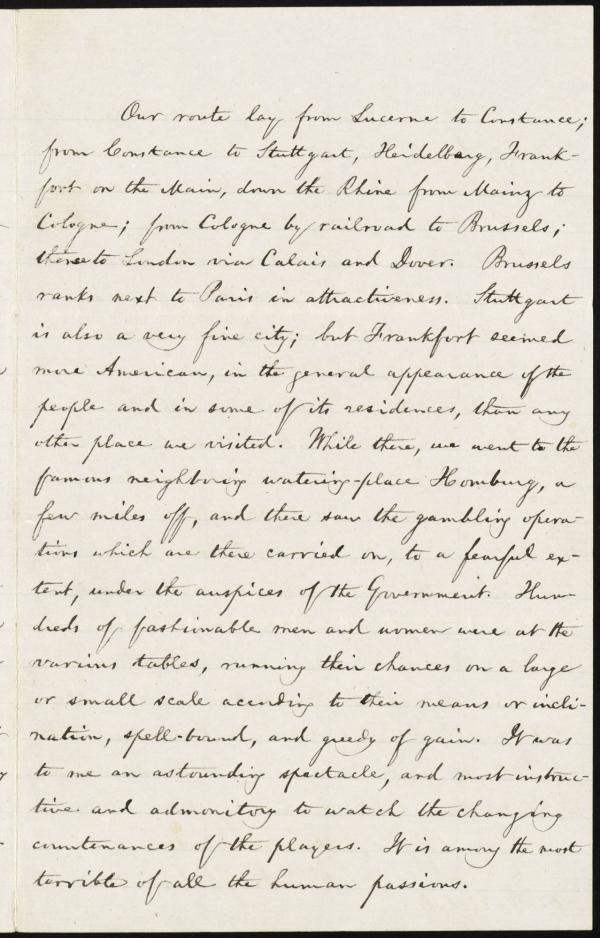 Our route lay from Lucerne to Constance;
from Constance to Stuttgart, Heidelberg, Frank-
fort on the Main, down the Rhine from Mainz to
Cologne; from Cologne by railroad to Brussels;
thence to London via Calais and Dover. Brussels
ranks next to Paris in attractiveness. Stuttgart
is also a very fine city; but Frankfort seemed
more American, in the general appearance of the
people and in some of its residences, than any
other place we visited. While there, we went to the
famous neighboring watering-place Homburg, a
few miles off, and there saw the gambling opera-
tions which are there carried on, to a fearful ex-
tent, under the auspices of the Government. Hun-
dreds of fashionable men and women were at the
various tables, running their chances on a large
or small scale according to their means or incli-
nation, spell-bound, and greedy of gain. It was
to me an astounding spectacle, and most instruc-
tive and admonitory to watch the changing
countenances of the players. It is among the most
terrible of all the human passions.